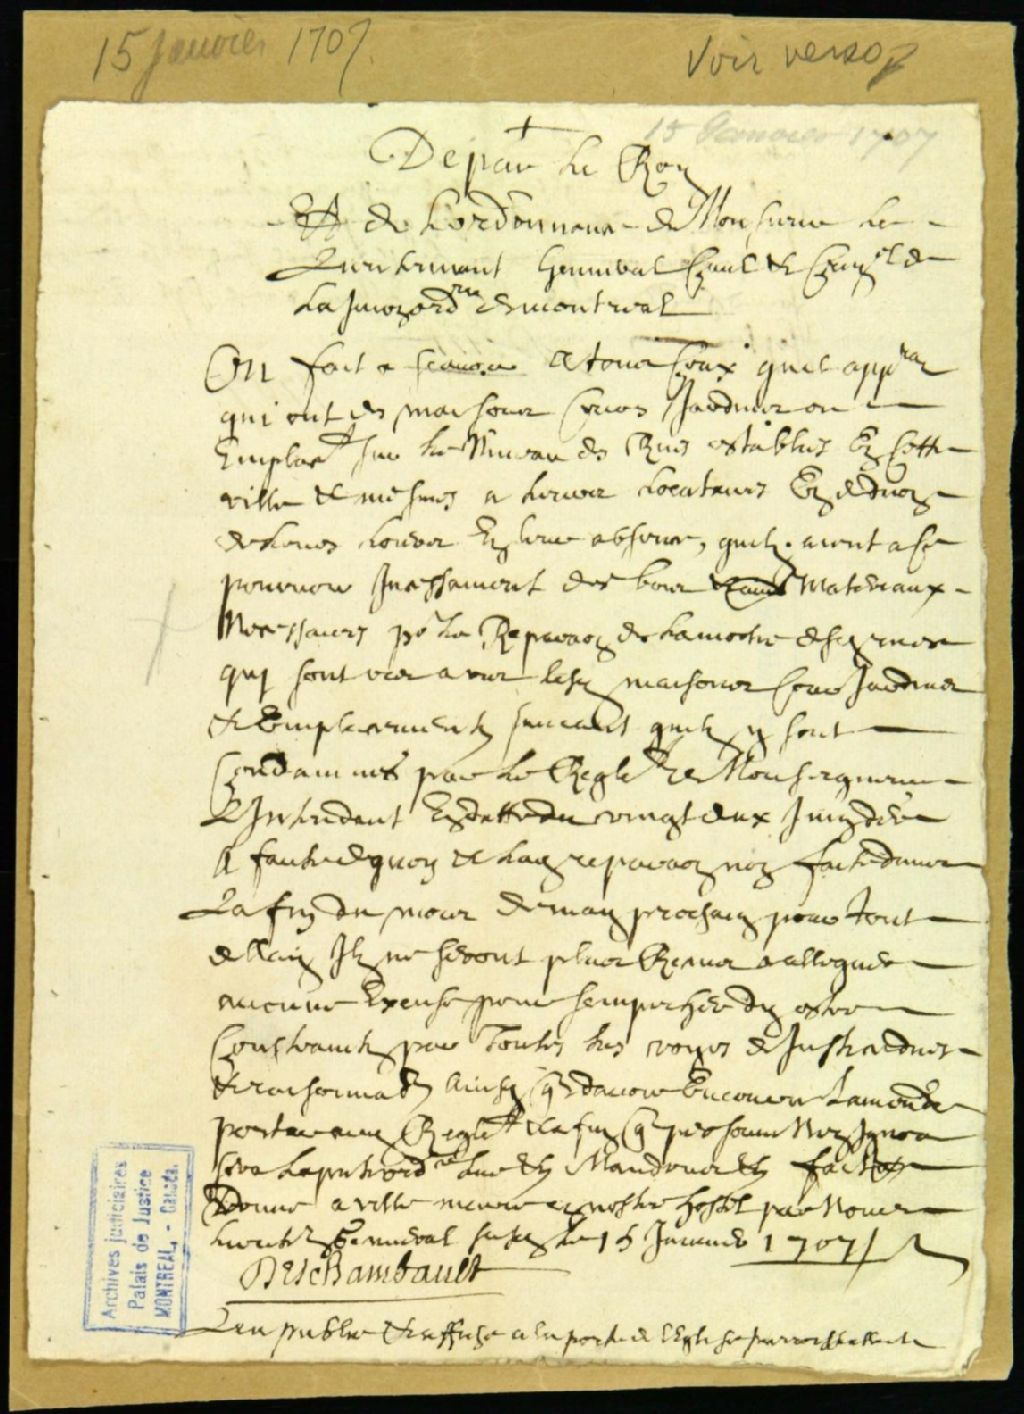 15 janvier 1707.
Voir verso
15 Janvier 1707
De par le Roy
Et de Lordonnance de Monsieur le
Lieutenant General Civil et Crim.el de
La Jurisd
On fait a scavoir a tous Ceux quil app
qui ont des maisons Cours Jardins ou
Emplac.t sur le Niveau des Rues establies En Cette
ville et mesmes a leurs Locataires
En leur absence, quils aient a se
pourvoir Incessament des bons Materiaux
Necessaires po.r La Reparaon de La moitie des rues
qui sont vis a vis lesd maisons Cours Jardins
et Emplacements suivant quils y sont
Condamnés par le Regle.t de Monseigneur
L'Intendant En datte du vingt deux Juin der
A faute de quoy et lad reparaon non faite dans
La fin du mois de may prochain pour tout
dellay Ils ne seront plus Receus a alleguer
aucune Excuse pour sempecher dy estre
Constraints par Toutes les voyes de Justice
et raisonnab Ainsy que davoir Encouru Lamende
portee aud Regle.t et a fin que personne Nen Ignore
sera la pnte ord.ce lue
Donné a ville marie en nostre hostel par Nous
Lieut General susd le 15 Janvier 1707
Deschambault
Leu publié et affiché a la porte de l'Eglise parroissialle
Archives judiciaires
Palais de Justice
MONTREAL, - Canada.